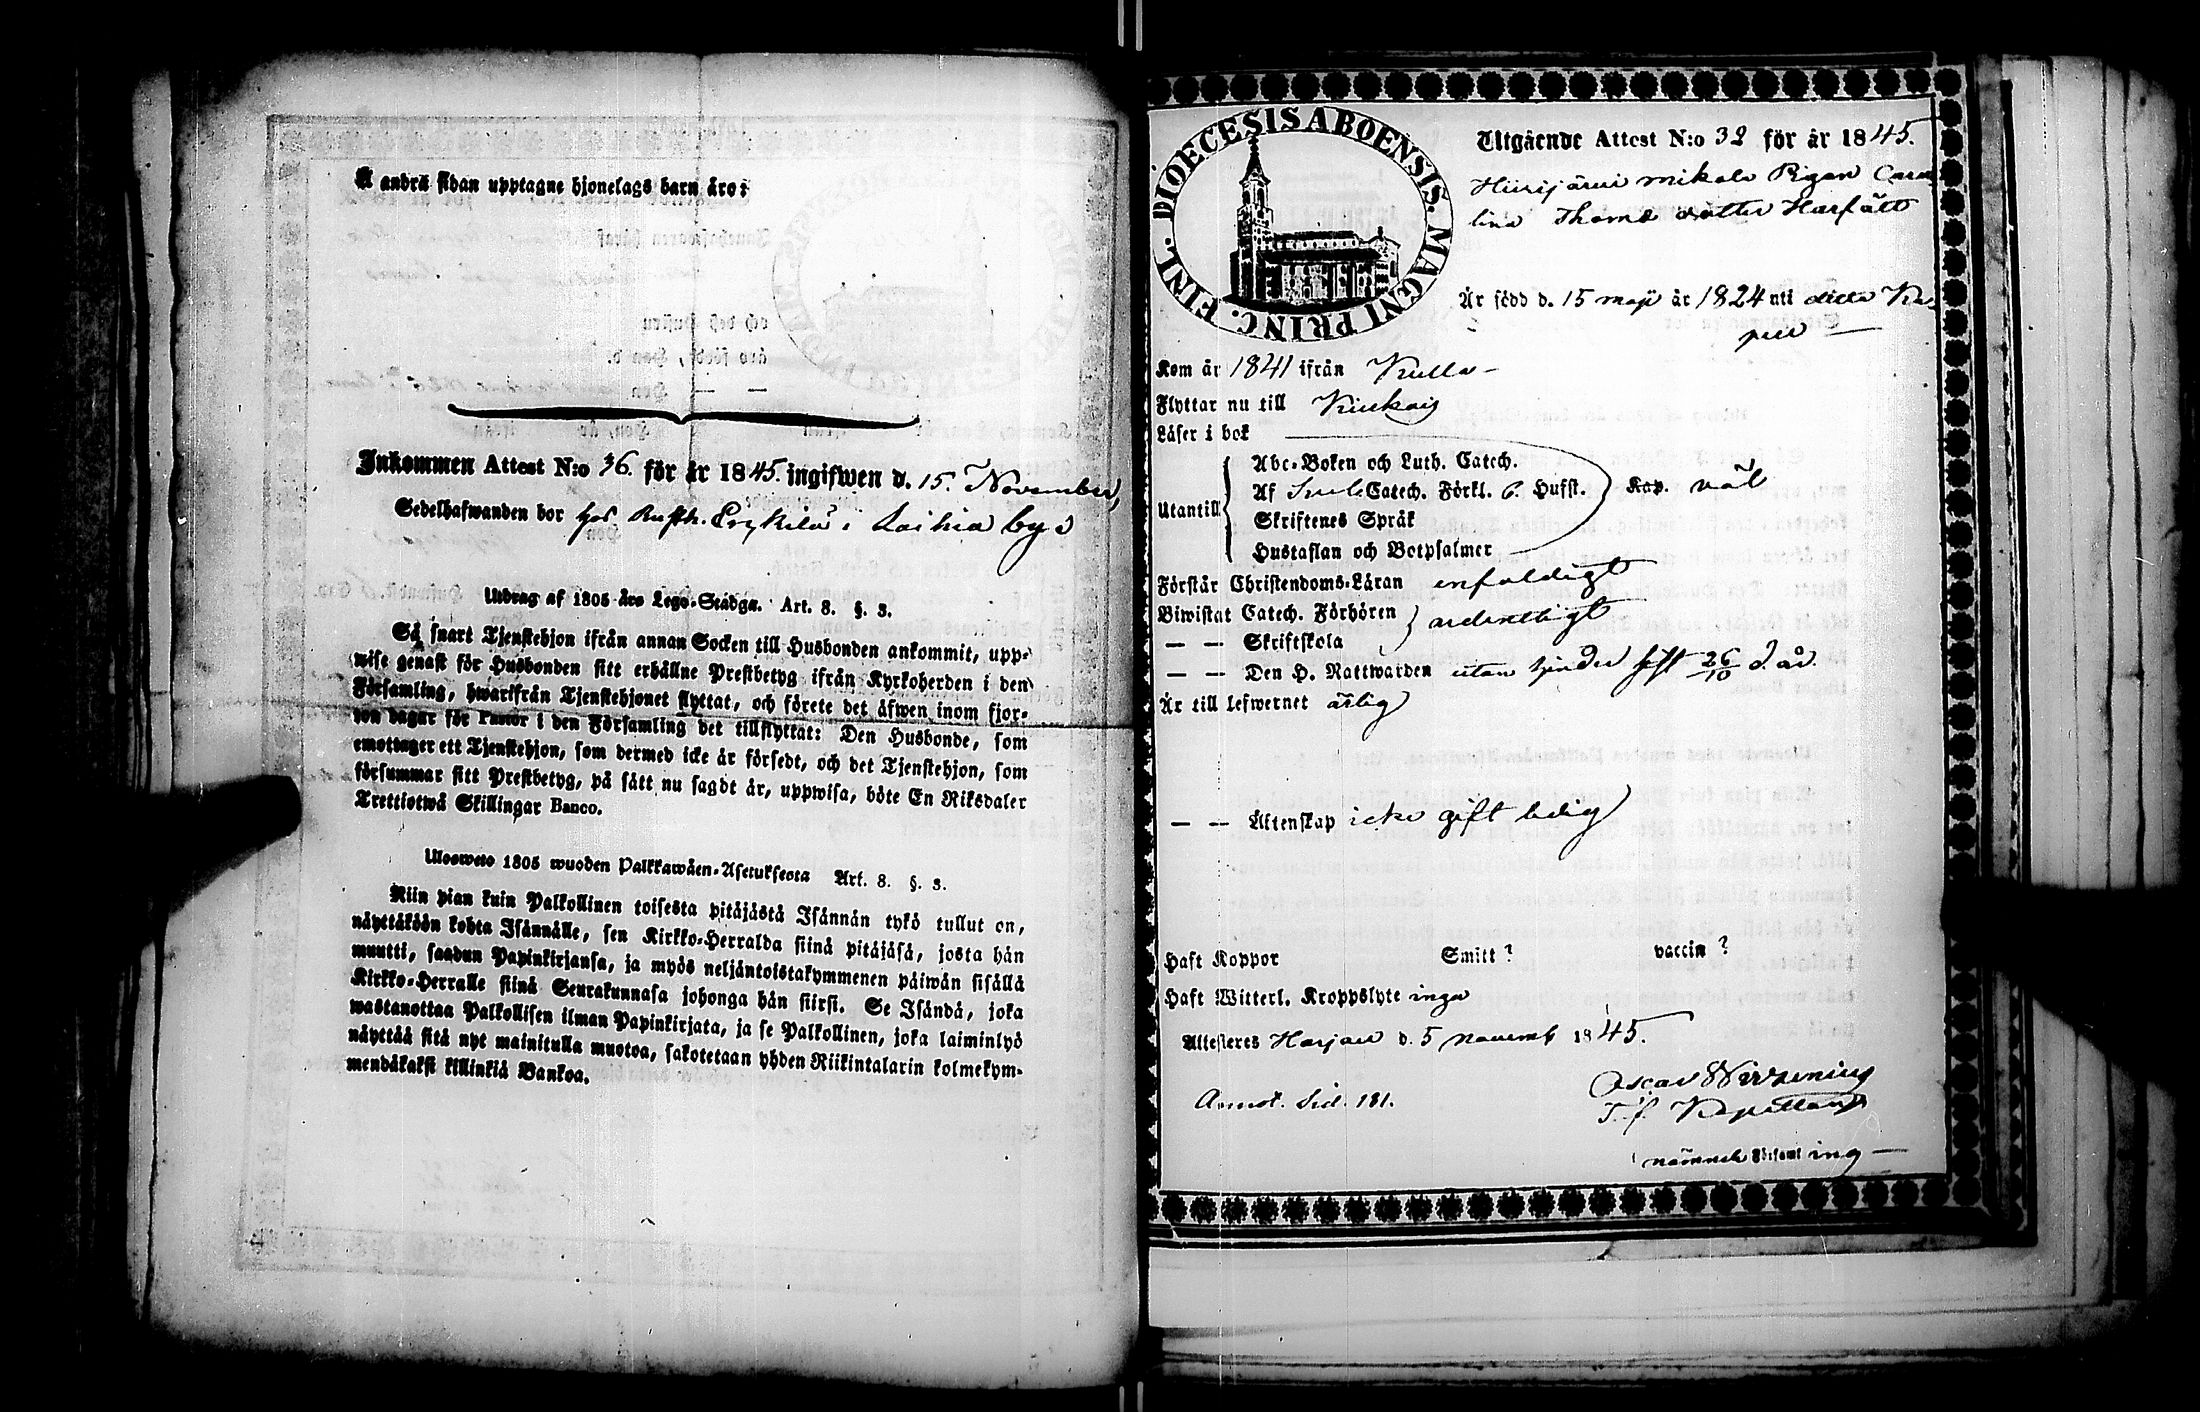 Å andra sidan upptagne hjonelags barn äro:
Inkommen Attest N:o 36. för år 1845. ingifwen d. 15. November,
Sedelhafwanden bor hos Rusth. i Laihia by
Utdrag af 1805 års Lego-Stadga. Art. 8. §. 3.
Så snart Tjenstehjon ifrån annan Socken till Husbonden ankommit, upp-
wise genast för Husbonden sitt erhållne Prestbetyg ifrån Kyrkoherden i den
Församling, hwarifrån Tjenstehjonet flyttat, och förete det äfwen inom fjor-
ton dagar för Pastor i den Församling det tillflyttat: Den Husbonde, som
emottager ett Tjenstehjon, som dermed icke är försedt, och det Tjenstehjon, som
försummar sitt Prestbetyg, på sätt nu sagdt är, uppwisa, böte En Riksdaler
Trettiotwå Skillingar Banco.
Ulosweto 1805 wuoden Palkkawäen-Asetuksesta Art. 8. §. 3.
Niin pian kuin Palkollinen toisesta pitäjästä Isännän tykö tullut on,
näyttäköön kohta Isännälle, sen Kirkko-Herralda siinä pitäjäsä, josta hän
muutti, saadun Papinkirjansa, ja myös neljäntoistakymmenen päiwän sisällä
Kirkko-Herralle siinä Seurakunnasa johonga hän siirsi. Se Isändä, joka
wastanottaa Palkollisen ilman Papinkirjata, ja se Palkollinen, joka laiminlyö
näyttää sitä nyt mainitulla muotoa, sakotetaan yhden Riikintalarin kolmekym-
mendäkaksi killinkiä Bankoa.
DIOECESIS ABOENSIS. MAGNI PRINC. FINL.
Utgående Attest N:o 32 för år 1845.
Hiirijärvi Mikola Pigan Caro
lina Thomä dotter Harfält
Är född d. 15 maji år 1824 uti detta Ka
pell
Kom år 1841 ifrån Kulla
Flyttar nu till Kiukais
Läser i bok
Utantill
Abc-Boken och Luth. Catech.
Af Catech. Förkl. 6. Hufst.
Kap. väl
Skriftenes Språk
Hustaflan och Botpsalmer
Förstår Christendoms-Läran enfaldigt
Biwistat Catech. Förhören ordentligt
— — Skriftskola
— — Den H. Nattwarden utan hinder sist 26/10 d. år
Är till lefwernet ärlig
— — Äktenskap icke gift ledig
Haft Koppor Smitt? vaccin?
Haft Witterl. Kroppslyte inga
Attesteres Harjau d. 5 novemb 1845.
Oscar
T.f. Kapellan
Annot. Sid. 181.
nämnde Församl ing